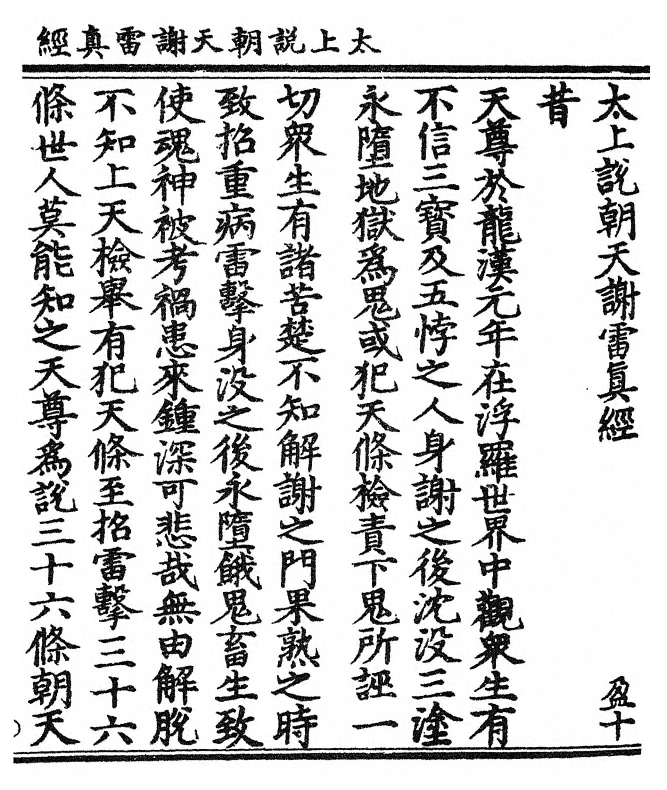 太上說朝天謝雷真經
太上說朝天謝雷真經 盈十
昔
天尊於龍漢元年在浮羅世界中觀衆生有
不信三寶及五悖之人身謝之後沈没三塗
永墮地獄為鬼或犯天條檢責下鬼所誣一
切衆生有諸苦楚不知解謝之門果熟之時
致招重病雷擊身没之後永墮餓鬼畜生致
使魂神被考禍患來鍾深可悲哉無由解脫
不知上天檢舉有犯天條至招雷擊三十六
條世人莫能知之天尊為說三十六條朝天